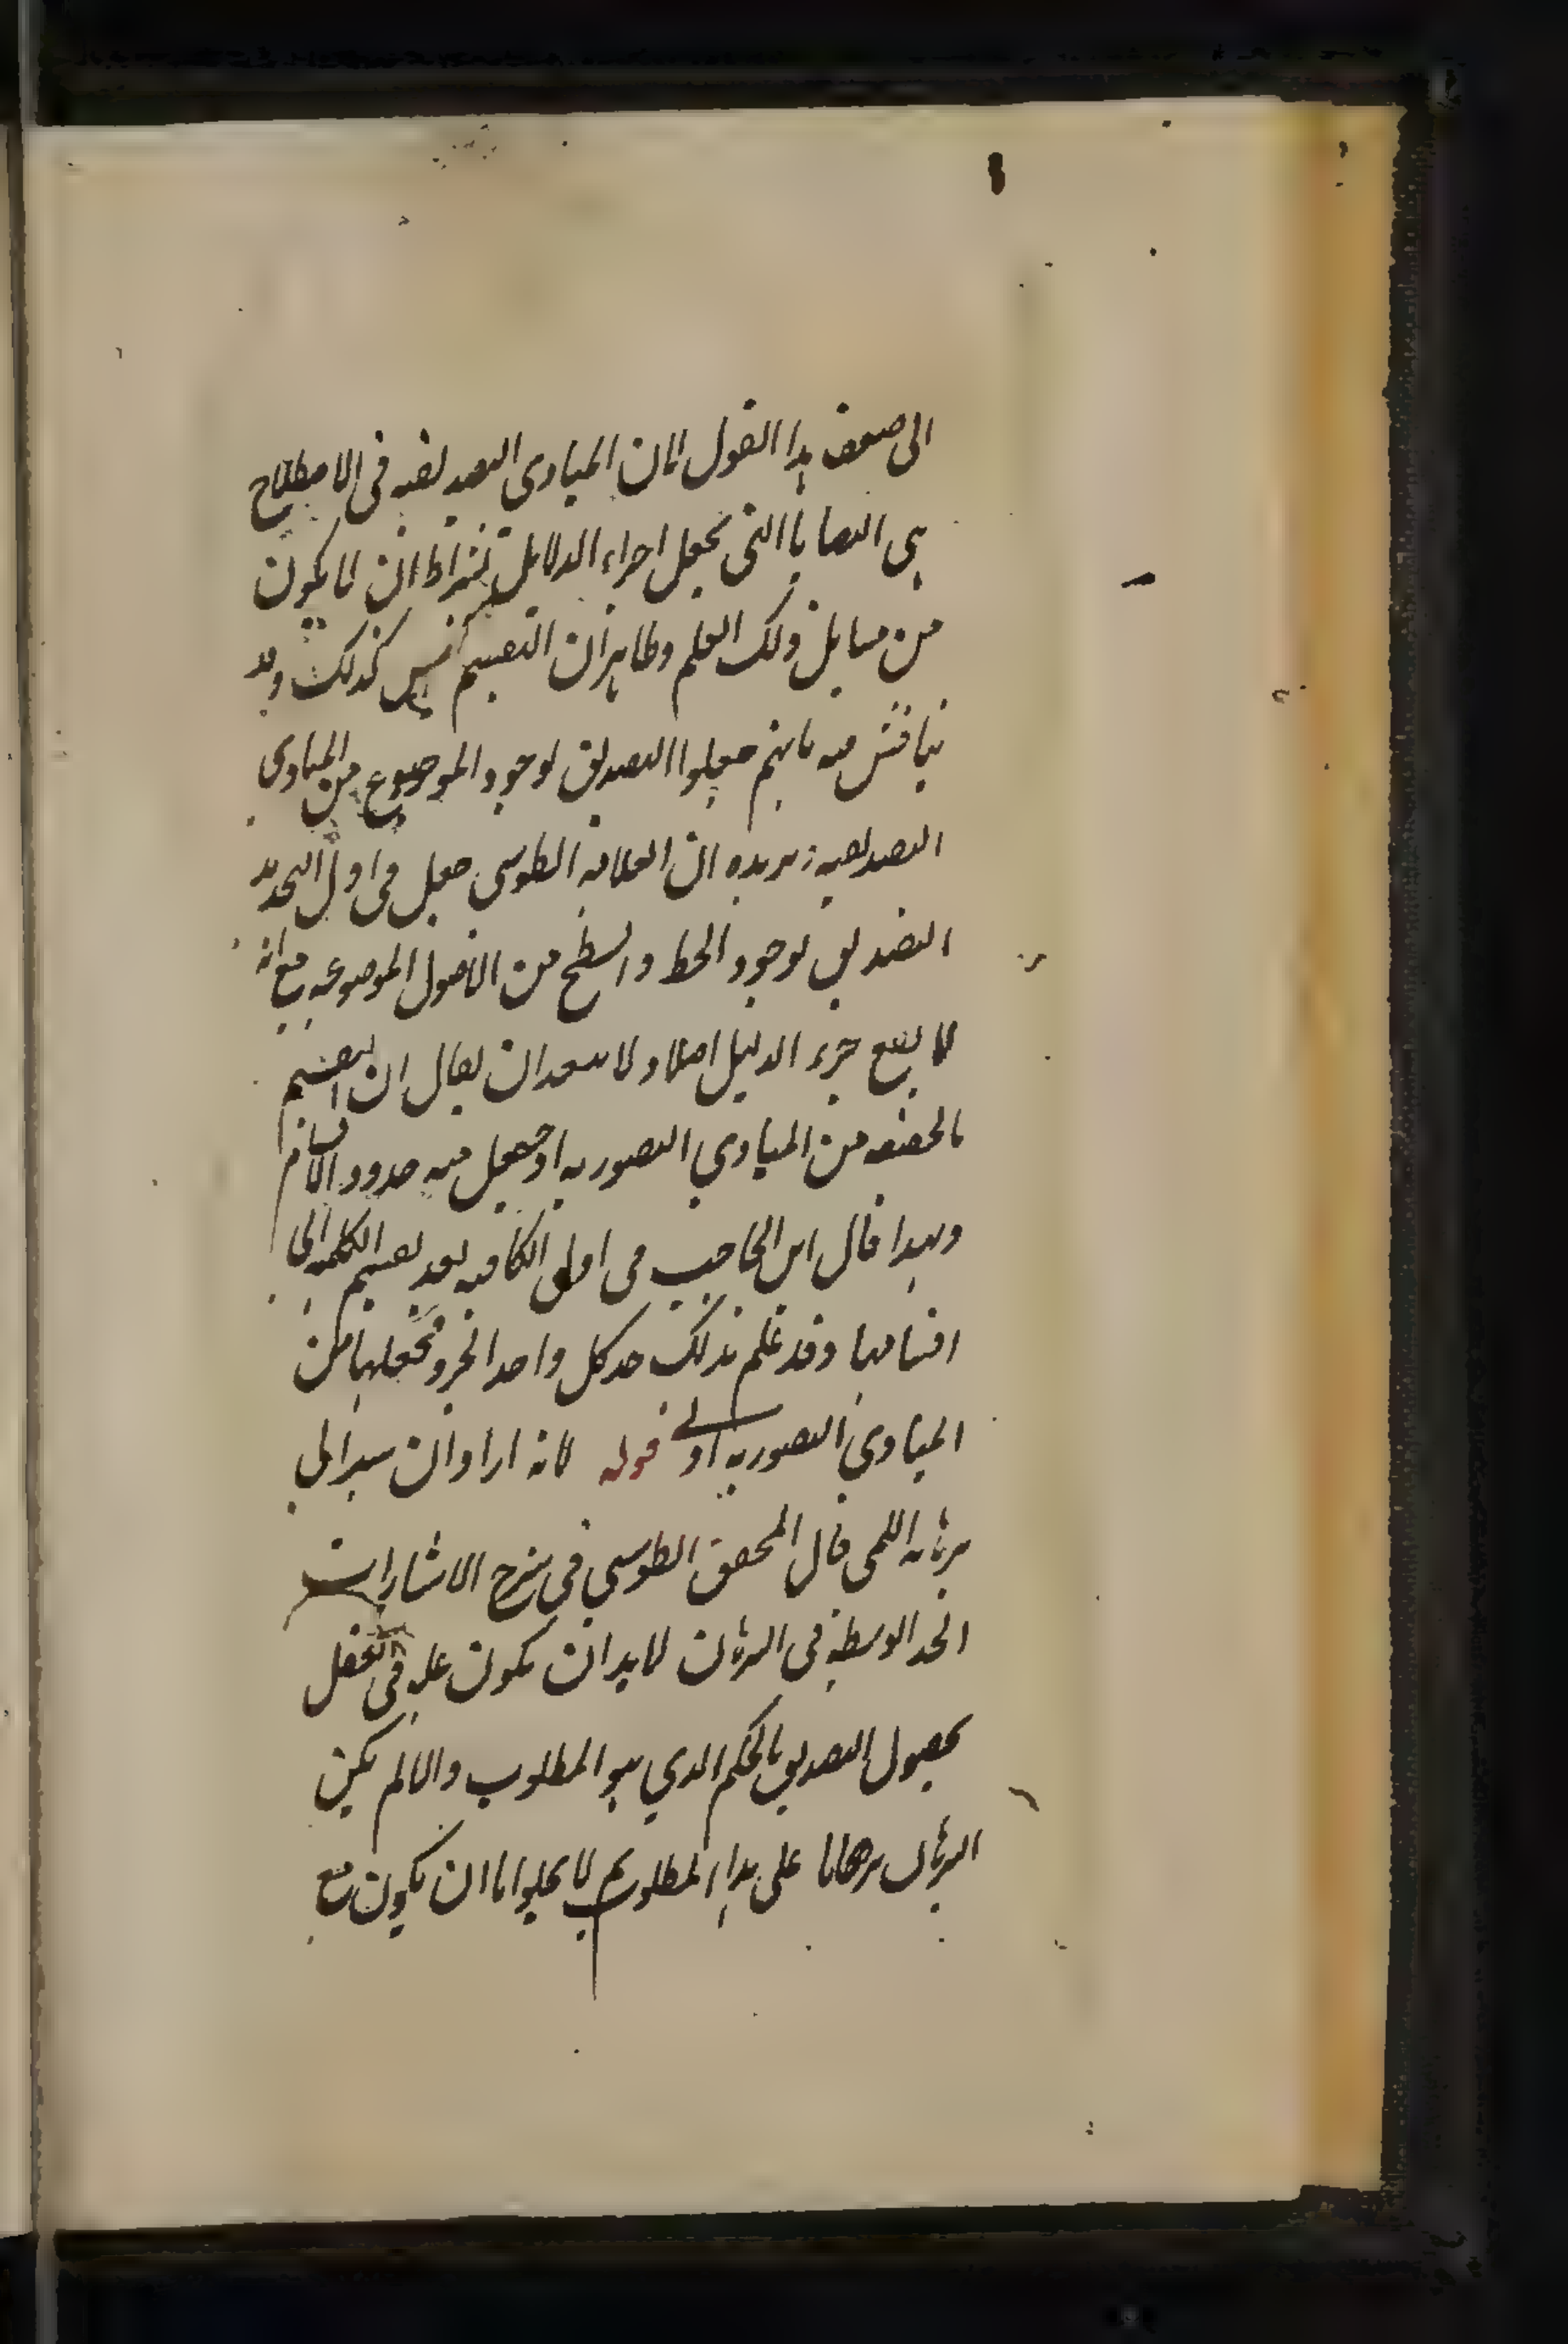 الى ضعف هذا القول لان المبادى التصديقية فى الاصطلاح
هى القضايا التى تجعل اجزاء الدلايل بشرط ان لا يكون
من مسايل ذلك العلم وظاهر ان التقسيم ليس كذلك وقد
يناقش فيه بانهم جعلوا التصديق بوجود الموضوع من المبادى
التصديقية يريده ان العلامة الطوسى جعل فى اول التحرير
التصديق بوجود الخط والسطح من الاصول الموضوعة مع انه
لا يقع جزء الدليل اصلا ولا يبعد ان يقال ان التقسيم
بالحقيقة من المبادي التصورية اذ يجعل فيه حدود الاقسام
ولهذا قال ابن الحاجب فى اول الكافية بعد تقسيم الكلمة الى
اقسامها وقد علم بذلك حد كل واحد الخ فجعلها من
المبادي التصورية اولى قوله لانه اراد ان يشير الى
برهانه اللمى قال المحقق الطوسي في شرح الاشارات
الحد الوسط فى البرهان لابد ان يكون علة فى العقل
بحصول التصديق بالحكم الذي هو المطلوب والا لم يكن
البرهان برهانا على هذا المطلوب ثم لا يخلوا اما ان يكون مع